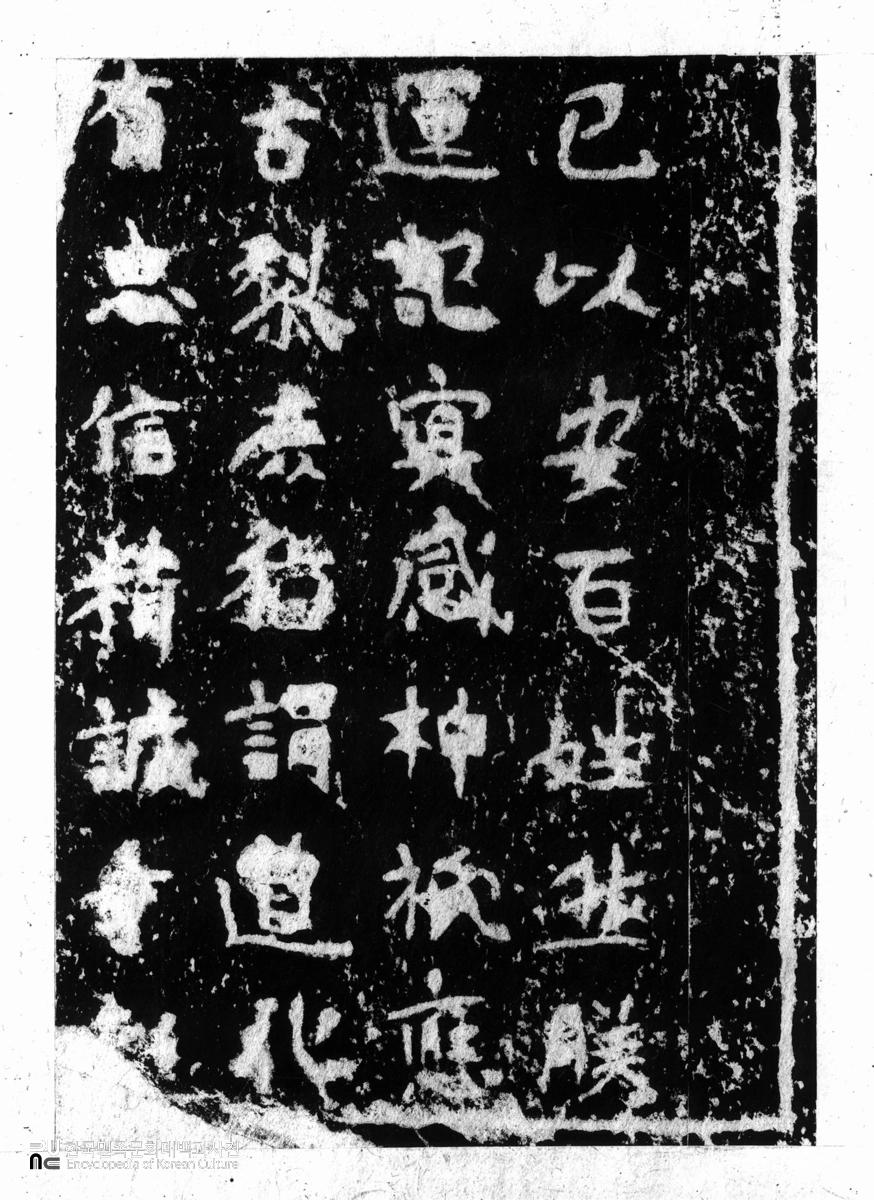 己以安百姓然朕
運記冥感神祇應
古黎庶猶謂道化
有忠信精誠才
한국민족문화대백과사전
Encyclopedia of Korean Culture